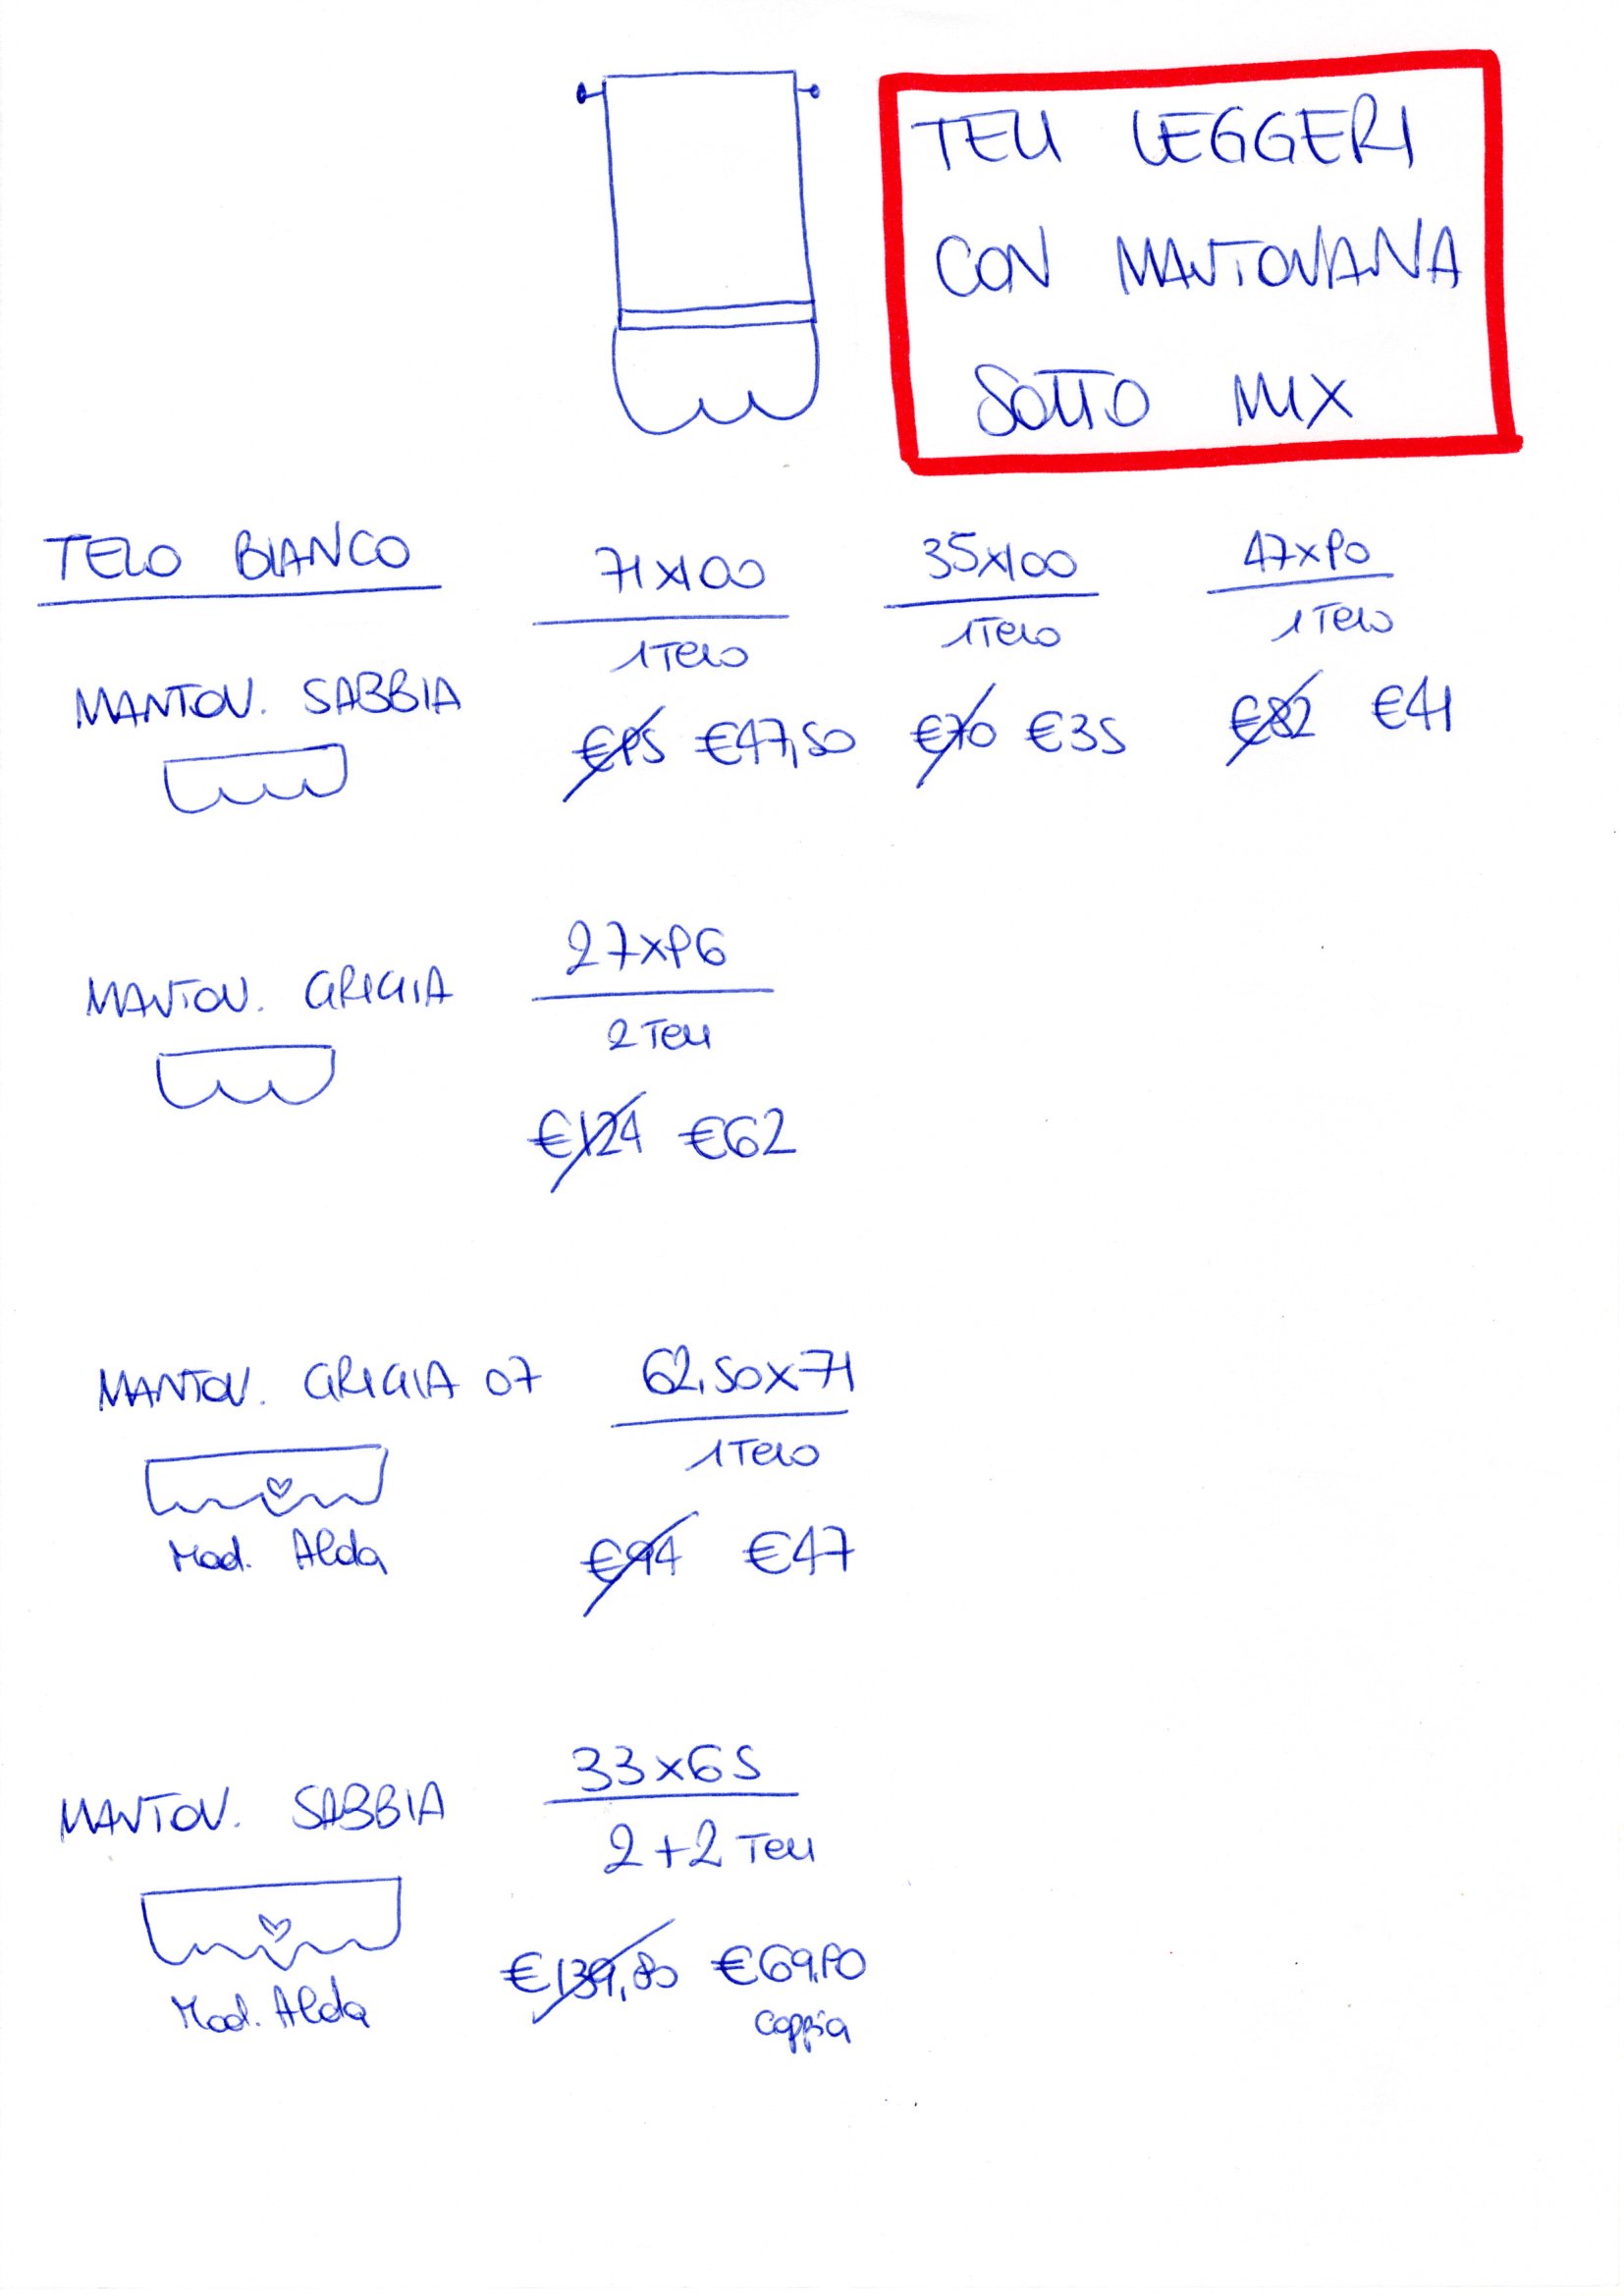 TELI LEGGERI
CON MANTOVANA
SOTTO MIX
TELO BIANCO
71x100
35x100
47x90
1 Telo
1 Telo
1 Telo
MANTOV. SABBIA
€95 €47,50
€70 €35
€82 €41
27x96
MANTOV. GRIGIA
2 Teli
€124 €62
MANTOV. GRIGIA 07
62,50x71
1 Telo
Mod. Alda
€94 €47
33x65
MANTOV. SABBIA
2+2 Teli
€139,80 €69,90
Mod. Alda
coppia